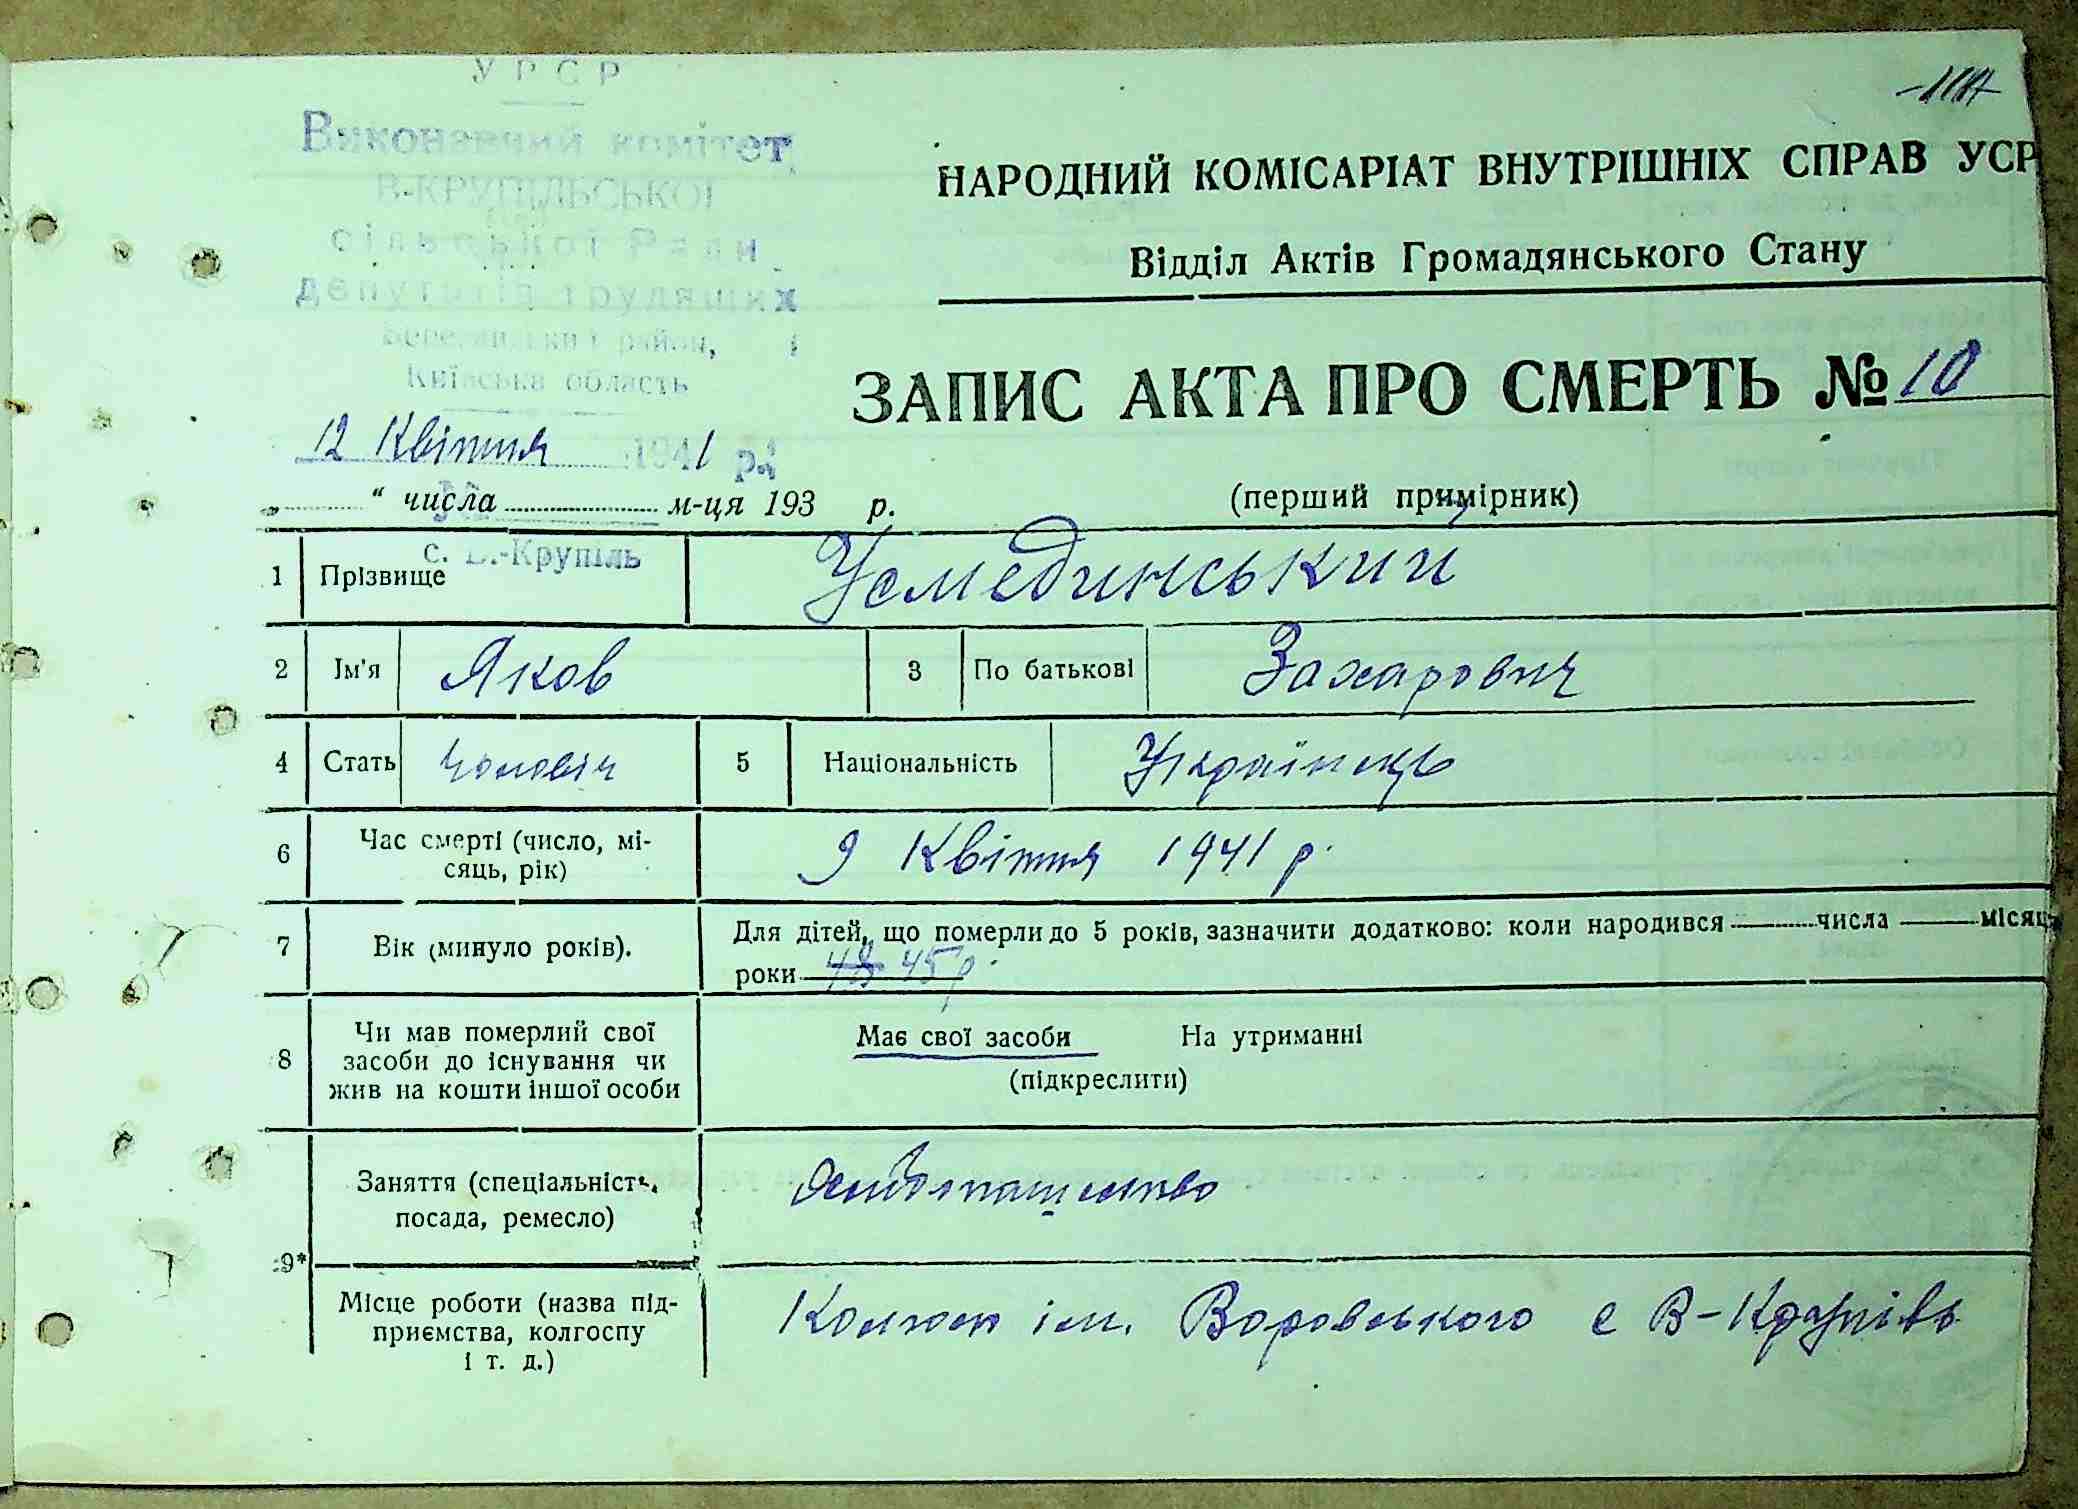 УРСР
Виконавчий комітет
В-КРУПІЛЬСЬКОЇ
сільської Ради
депутатів трудящих
район,
Київська область
12 Квітня 1941 р.
с. В.-Крупіль
НАРОДНИЙ КОМІСАРІАТ ВНУТРІШНІХ СПРАВ УСР
Відділ Актів Громадянського Стану
ЗАПИС АКТА ПРО СМЕРТЬ № 10
„ “ числа м-ця 193 р. (перший примірник)
1 Прізвище Усмединський
2 Ім'я Яков 3 По батькові Захарович
4 Стать Чоловіч 5 Національність Українець
6 Час смерті (число, мі-
сяць, рік) 9 Квітня 1941 р.
7 Вік (минуло років). Для дітей, що померли до 5 років, зазначити додатково: коли народився числа місяц
роки 45 р.
8 Чи мав померлий свої
засоби до існування чи
жив на кошти іншої особи
Має свої засоби На утриманні
(підкреслити)
9* Заняття (спеціальність,
посада, ремесло)
Місце роботи (назва під-
приємства, колгоспу
і т. д.)
Колгосп ім. Воровського с В-Крупівь